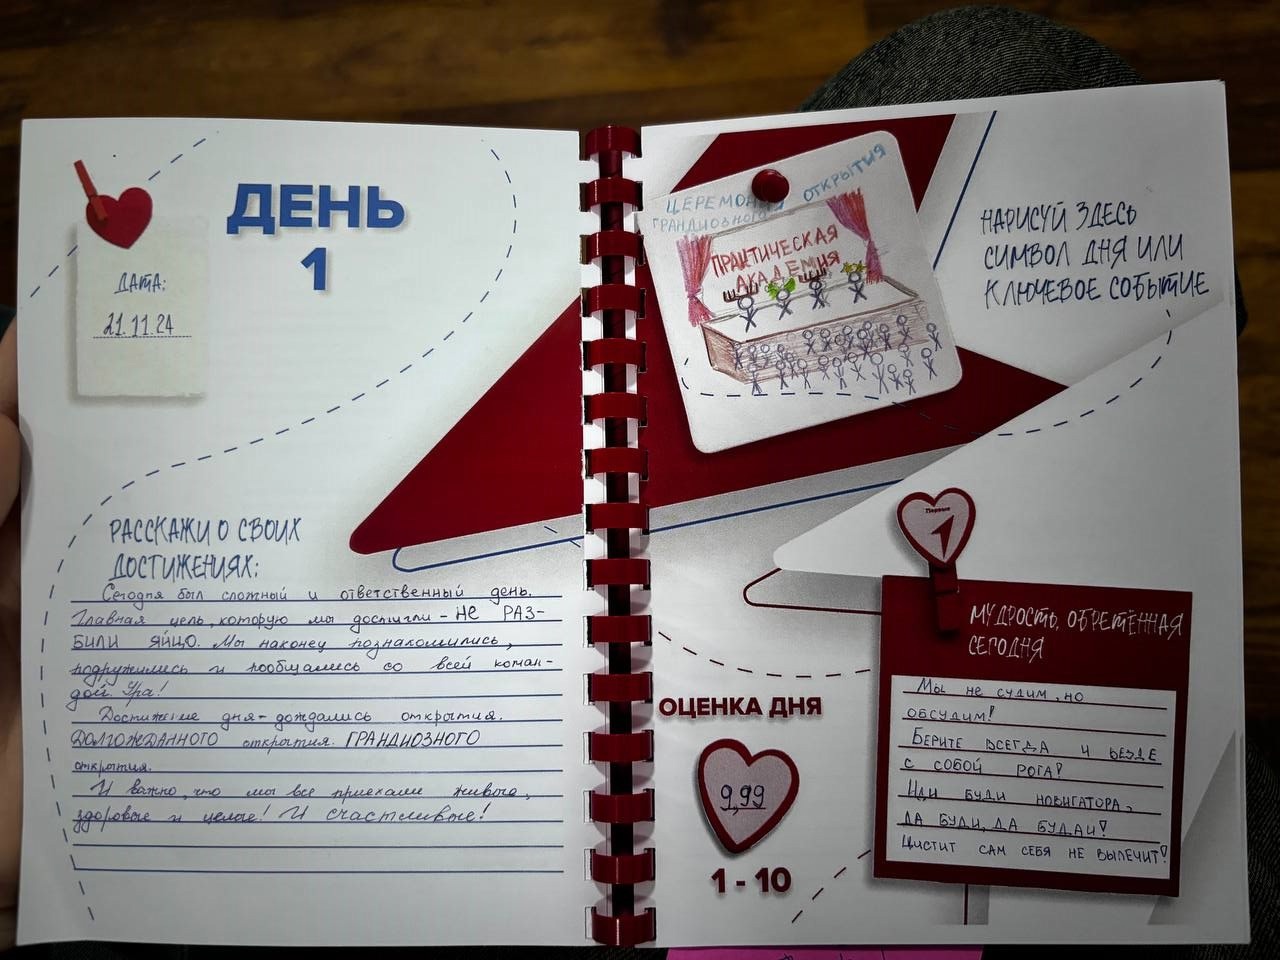 ДЕНЬ
1
ДАТА:
21.11.24
РАССКАЖИ О СВОИХ
ДОСТИЖЕНИЯХ:
Сегодня был сложный и ответственный день.
Главная цель, которую мы достигли - НЕ РАЗ-
БИЛИ ЯЙЦО. Мы наконец познакомились,
подружились и пообщались со всей коман-
дой. Ура!
Достижение дня - дождались открытия.
ДОЛГОЖДАННОГО открытия. ГРАНДИОЗНОГО
открытия.
И важно, что мы все приехали живые,
здоровые и целые! И счастливые!
ЦЕРЕМОНИЯ ОТКРЫТИЯ
ГРАНДИОЗНОГО
ПРАКТИЧЕСКАЯ
АКАДЕМИЯ
НАРИСУЙ ЗДЕСЬ
СИМВОЛ ДНЯ ИЛИ
КЛЮЧЕВОЕ СОБЫТИЕ
Первые
МУДРОСТЬ, ОБРЕТЁННАЯ
СЕГОДНЯ
Мы не судим, но
обсудим!
Берите всегда и везде
с собой рога!
Иди буди навигатора,
да буди, да будай!
Цистит сам себя не вылечит!
ОЦЕНКА ДНЯ
9,99
1 - 10